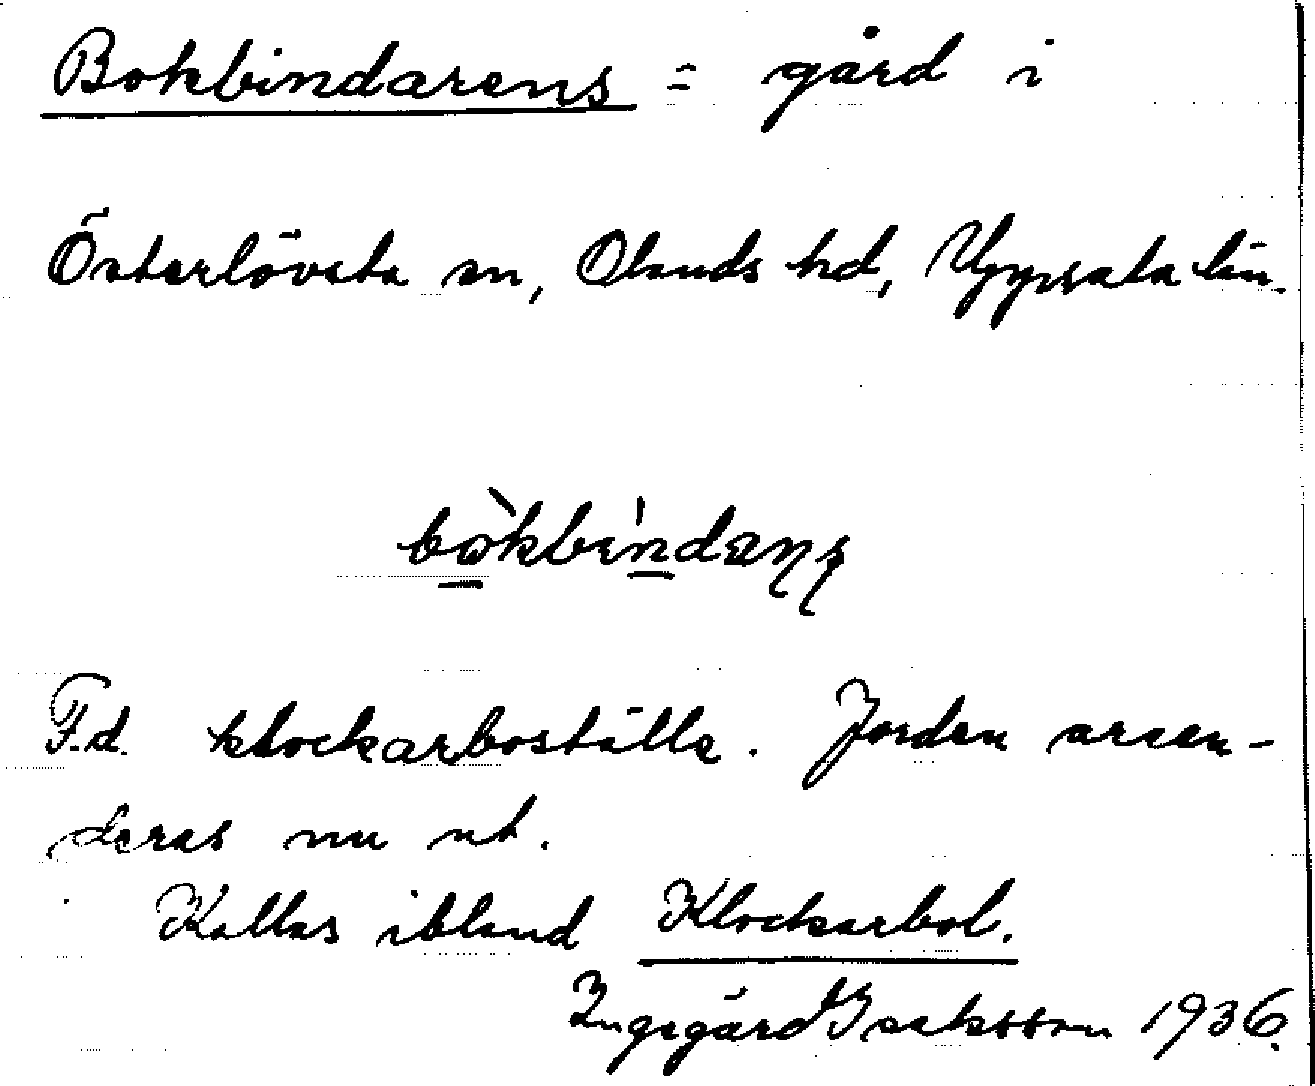 Bokbindarens = gård i
Österlövsta sn, Olands hd, Uppsala län.
bòkbìndaṇṣ
F.d. klockarboställe. Jorden arren-
deras nu ut.
Kallas ibland Klockarbol.
Ingegärd Isaksson 1936.